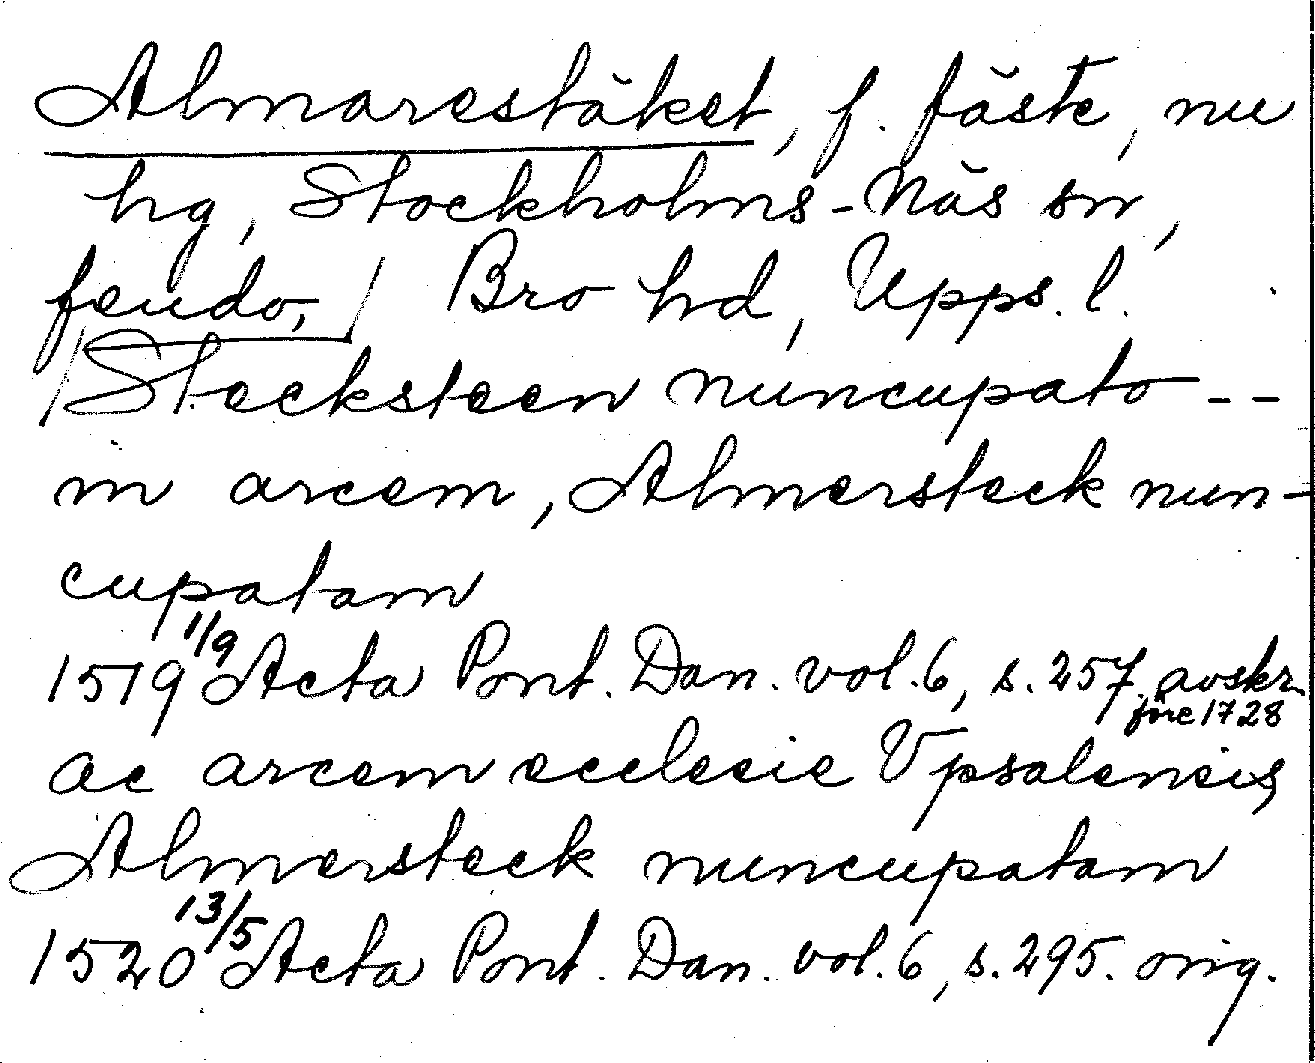 Almarestäket, f. fäste, nu
hg, Stockholms-Näs sn,
feudo, / Bro hd, Upps. l.
/Stecksteen nuncupato --
in arcem, Almersteck nun-
cupatam
1519 1/9 Acta Pont. Dan. vol. 6, s. 257. avskr. före 1728
ac arcem ecclesie Vpsalensis
Almersteck nuncupatam
1520 13/5 Acta Pont. Dan. vol. 6, s. 295. orig.